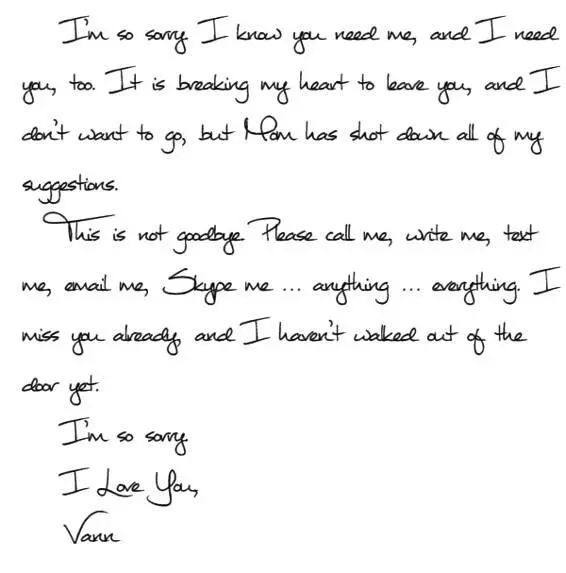 I'm so sorry. I know you need me, and I need
you, too. It is breaking my heart to leave you, and I
don't want to go, but Mom has shot down all of my
suggestions.
This is not goodbye. Please call me, write me, text
me, email me, Skype me ... anything ... everything. I
miss you already, and I haven't walked out of the
door yet.
I'm so sorry.
I Love You,
Vann